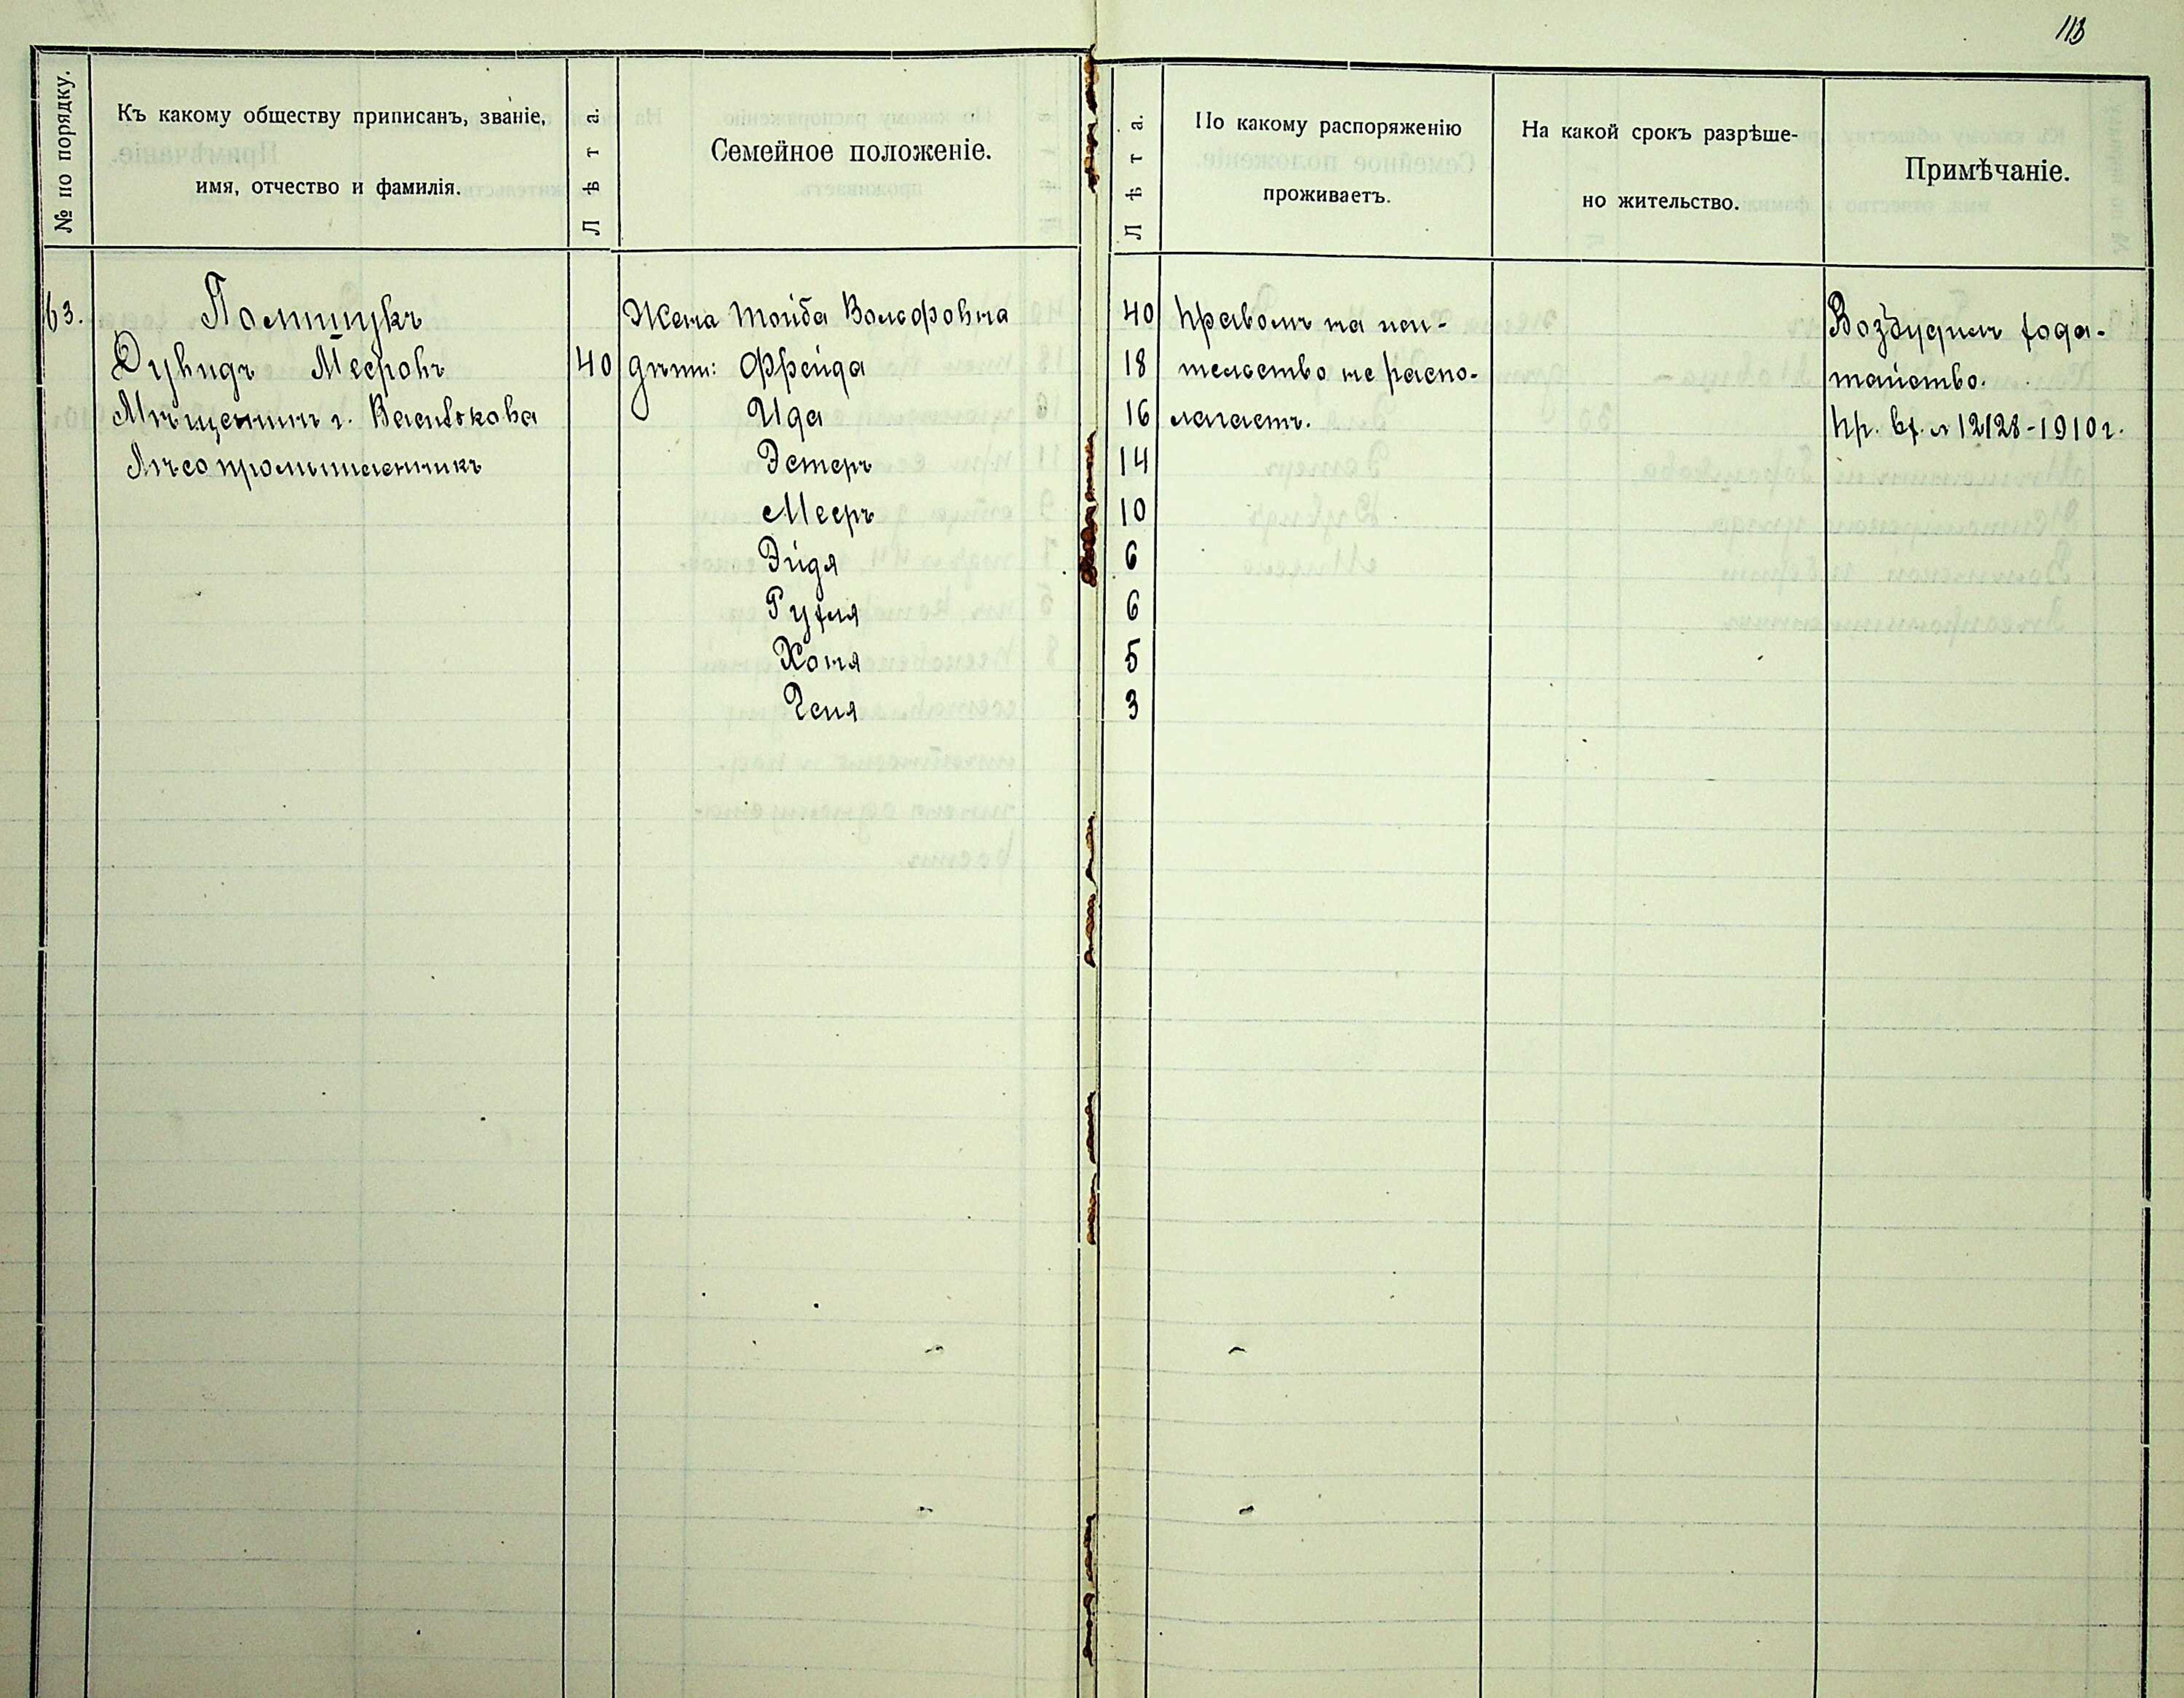 113
№ по порядку.
Къ какому обществу приписанъ, званіе,
имя, отчество и фамилія.
Лѣта.
Семейное положеніе.
Лѣта.
По какому распоряженію
проживаетъ.
На какой срокъ разрѣше-
но жительство.
Примѣчаніе.
63.
Полищукъ
Дувидъ Мееровъ
Мѣщанинъ г. Василькова
Лѣсопромышленникъ
40
Жена Тойба Вольфовна
дѣти: Фрейда
Ида
Эстеръ
Мееръ
Эйдя
Рухля
Хоня
Геня
40
18
16
14
10
6
6
5
3
Правомъ на жи-
тельство не распо-
лагаетъ.
Возбудилъ хода-
тайство.
пр. вх. № 12128-1910 г.